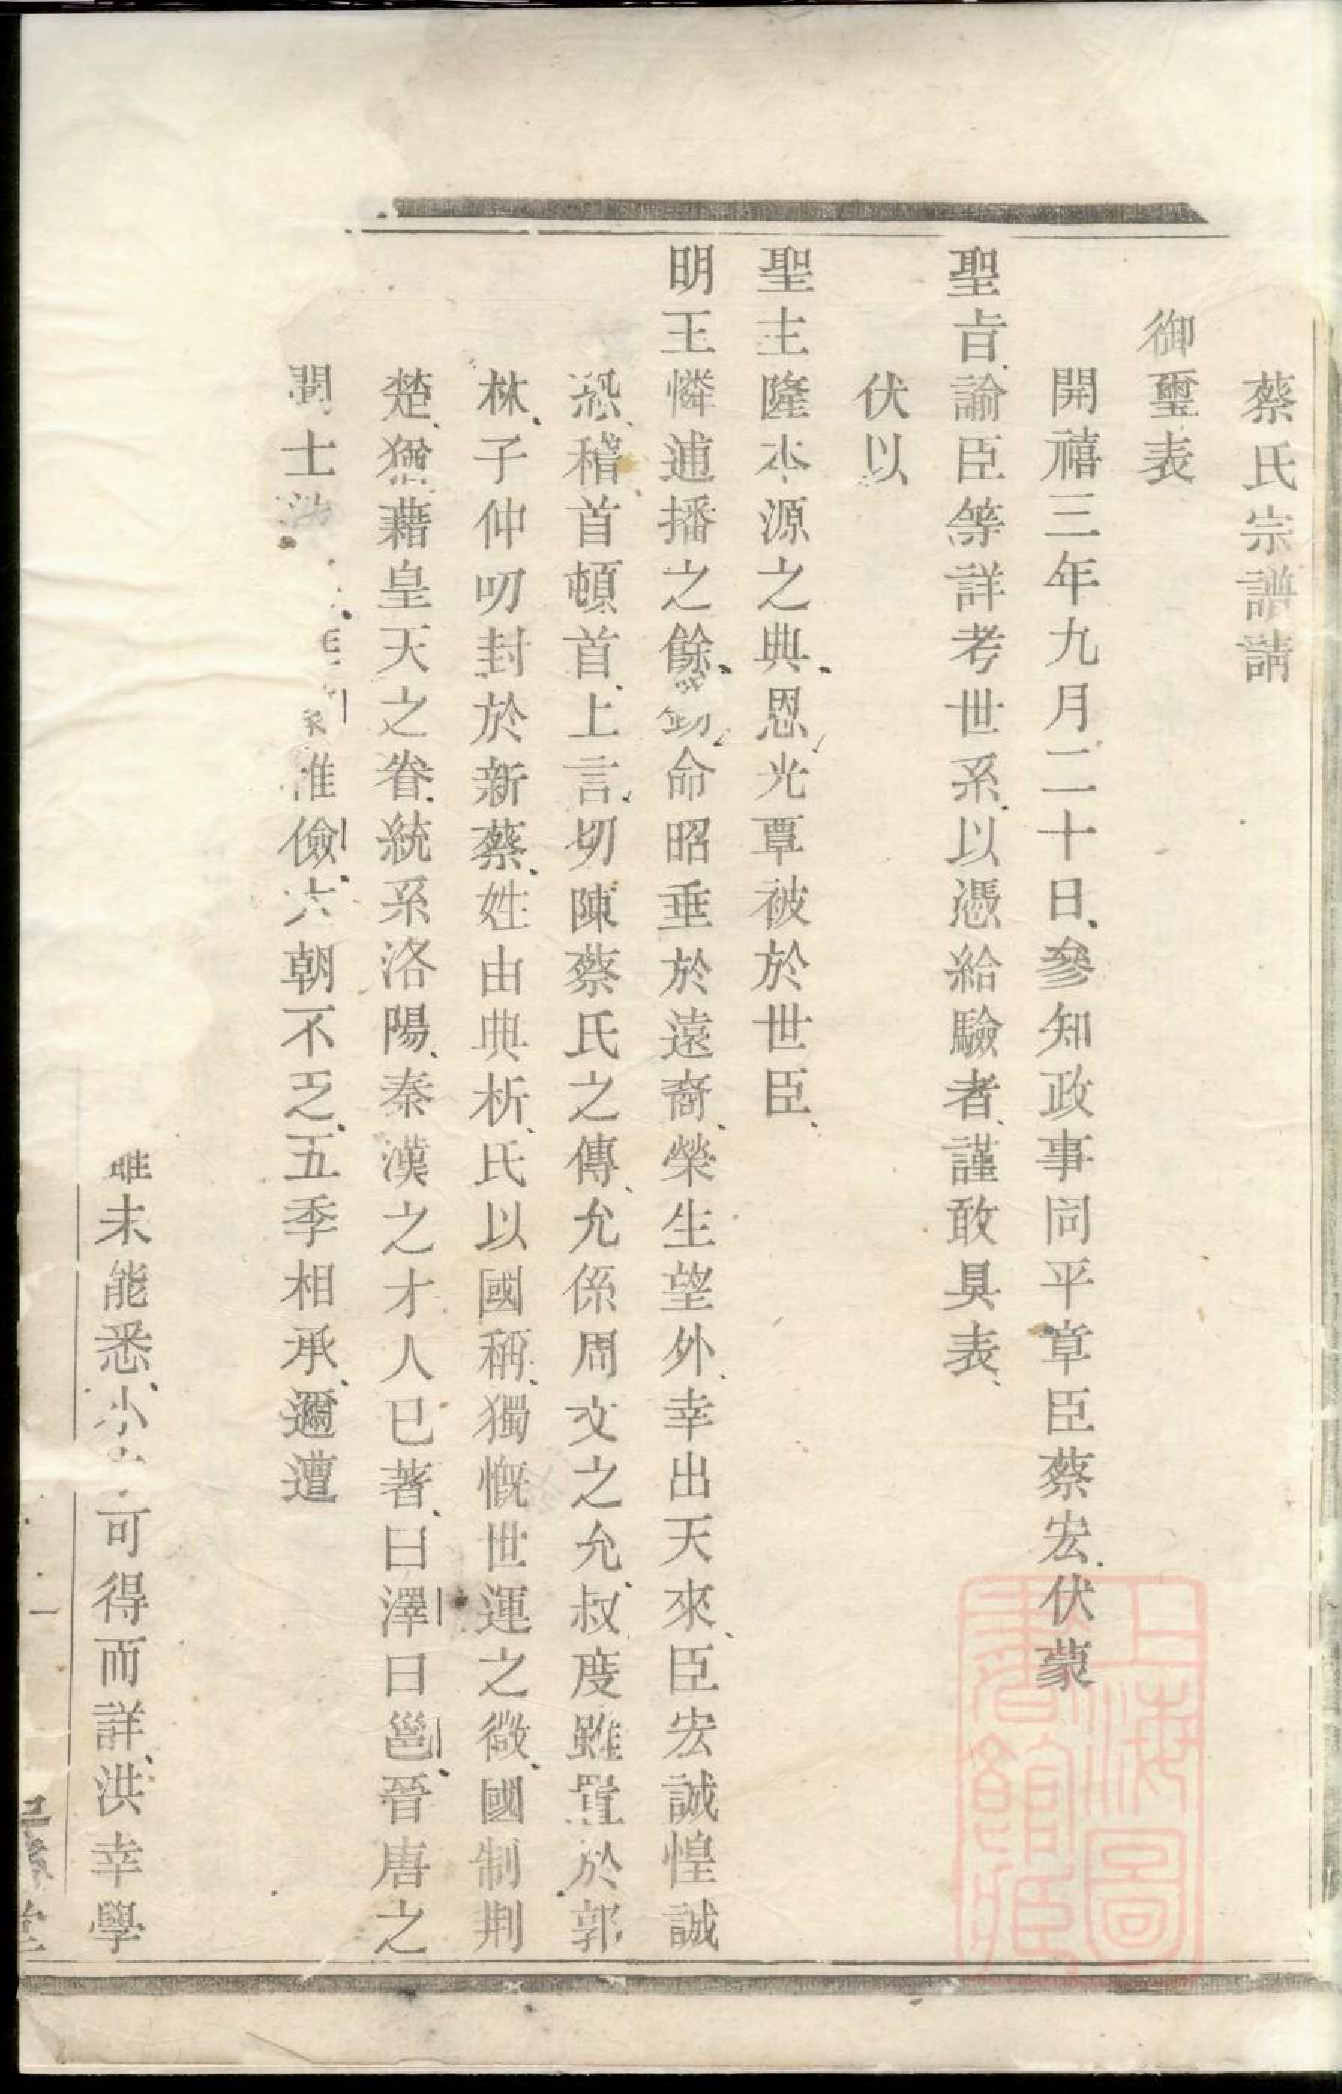 蔡氏宗譜請
御璽表
開禧三年九月二十日參知政事同平章臣蔡宏伏蒙
聖旨諭臣等詳考世系以憑給驗者謹敢具表
伏以
聖主隆本源之典恩光覃被於世臣
明王憐逋播之餘命昭垂於遠裔榮生望外幸出天來臣宏誠惶誠
恐稽首頓首上言切陳蔡氏之傳允係周文之允叔度雖置於郭
林子仲叨封於新蔡姓由典析氏以國稱獨慨世運之微國制荆
楚猶藉皇天之眷統系洛陽秦漢之才人已著曰澤曰邕晉唐之
聞士 準儉六朝不乏五季相承邇遭
雖未能悉 可得而詳洪幸學
一
堂
上海圖書館藏